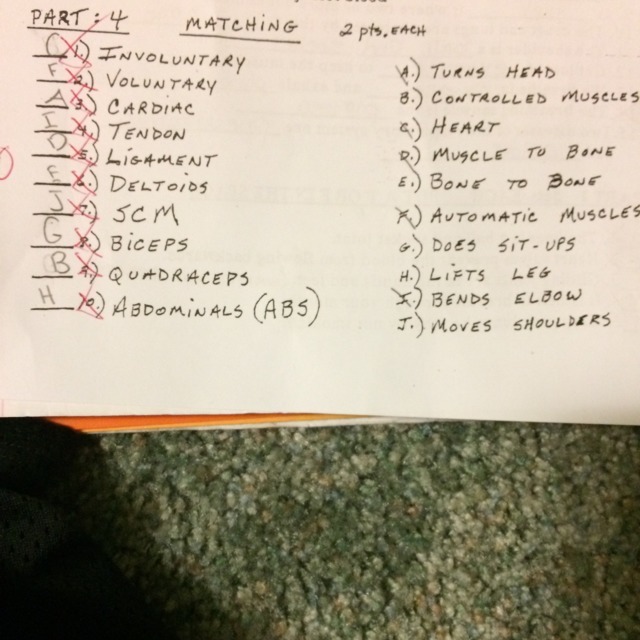 PART: 4 MATCHING 2 pts. EACH
1.) INVOLUNTARY
F 2.) VOLUNTARY
A 3.) CARDIAC
I 4.) TENDON
D 5.) LIGAMENT
E 6.) DELTOIDS
J 7.) SCM
G 8.) BICEPS
B 9.) QUADRACEPS
H 10.) ABDOMINALS (ABS)
A.) TURNS HEAD
B.) CONTROLLED MUSCLES
C.) HEART
D.) MUSCLE TO BONE
E.) BONE TO BONE
F.) AUTOMATIC MUSCLES
G.) DOES SIT-UPS
H.) LIFTS LEG
I.) BENDS ELBOW
J.) MOVES SHOULDERS